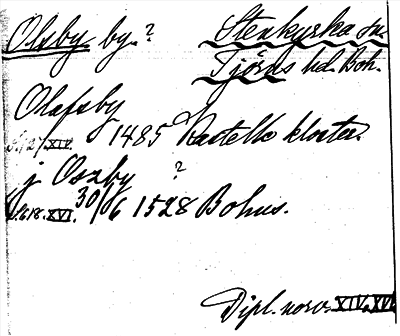 Olsby by.? Stenkyrka sn.
Tjörns hd. Boh.
Olafsby
XIV. 1485 Kastelle kloster.
j Oszby ?
XVI. 30/6 1528 Bohus.
Dipl. norv. XIV. XVI.